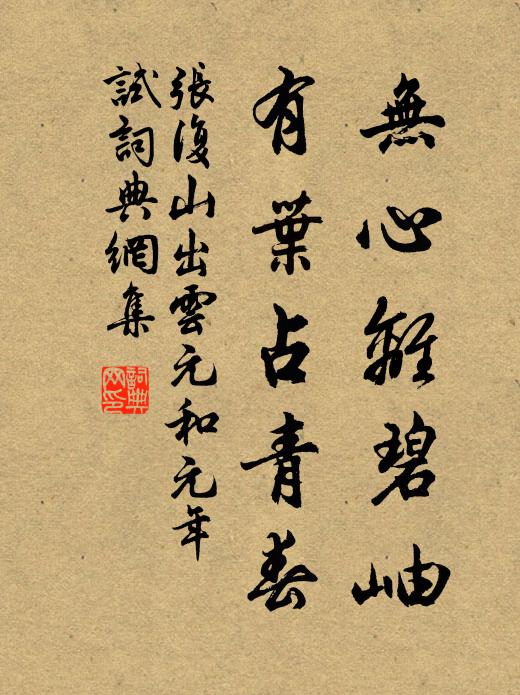 無心離碧岫
有葉占青春
張復山出雲元和元年
試詞典網集
詞典
网印